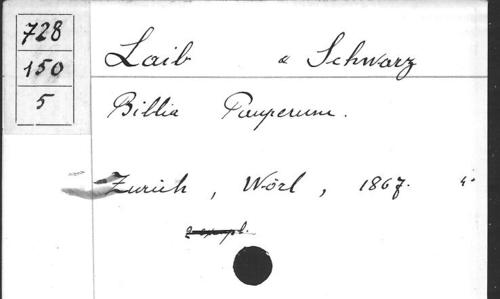 728
150
5
Laib & Schwarz
Biblia Pauperum.
Zurich, Wörl, 1867. 4°
2 exempl.